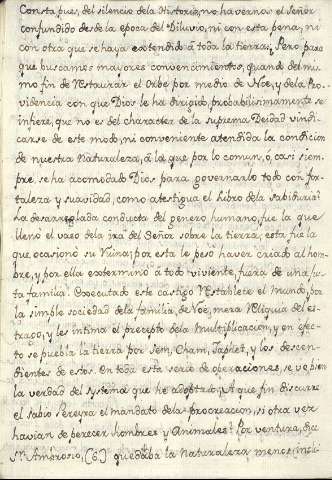 Consta pues, del silencio dela Historia, no havernos el Señor
confundido desde la epoca del Diluvio, ni con esta pena, ni
con otra que se haya extendido à toda la tierra; Pero para
que buscamos mayores convencimientos, quando del mis
mo fin de restaurar el Orbe por medio de Noe, y dela Pro-
videncia con que Dios le ha dirigido, probabilisimamente se
infiere, que no es del character de la suprema Deidad vindi-
carse de este modo, ni conveniente atendida la condicion
de nuestra Naturaleza, à la que por lo comun, o casi siem-
pre, se ha acomodado Dios para governarlo todo con for-
taleza y suavidad, como atestigua el Libro dela Sabiduria?
La desarreglada conducta del genero humano, fue la que
lleno el vaso dela ira del Señor sobre la tierra, esta fue la
que ocasionó su Ruina; por esta le pesó haver criado al hom-
bre, y por ella exterminó à todo viviente, fuera de una jus
ta familia. Executado este castigo restablece el Mundo, por
la simple sociedad dela familia, de Noe, mera Reliquia del es-
trago, y les intima el precepto dela Multiplicacion, y en efec-
to se puebla la tierra por Sem, Cham, Japhet, y los descen-
dientes de estos. En toda esta serie de operaciones, se ve bien
la verdad del systema que he adoptado; A que fin discurre
el sabio Pereyra el mandato dela procreacion, si otra vez
havian de perecer hombres y Animales? Por ventura, dice
Sn. Ambrosio, (6) quedaba la Naturaleza menos